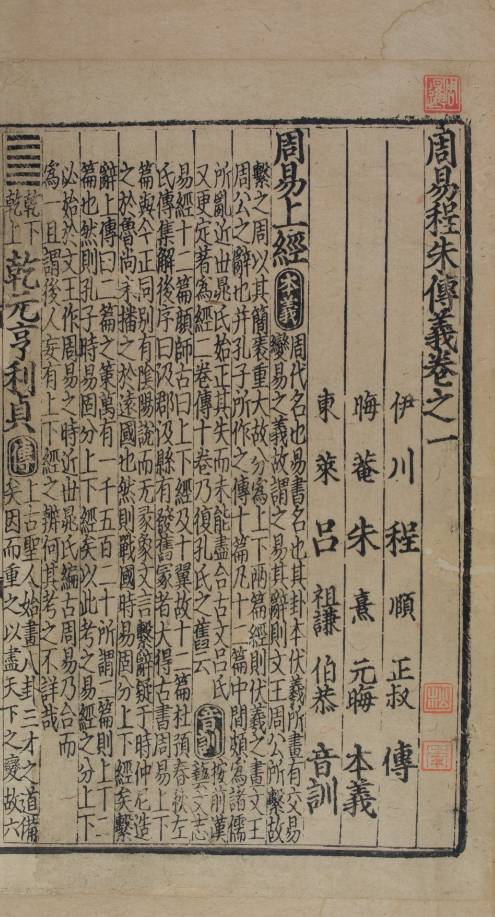 周易程朱傳義卷之一
伊川程頤正叔傳
晦菴朱熹元晦本義
東萊呂祖謙伯恭音訓
周易上經 本義 周代名也易書名也其卦本伏羲所畫有交易
變易之義故謂之易其辭則文王周公所繫故
繫之周以其簡袠重大故分為上下兩篇經則伏羲之畫文王
周公之辭也并孔子所作之傳十篇凡十二篇中間頗為諸儒
所亂近世晁氏始正其失而未能盡合古文呂氏
又更定著為經二卷傳十卷乃復孔氏之舊云 音訓 按前漢
藝文志
易經十二篇顏師古曰上下經及十翼故十二篇杜預春秋左
氏傳集解後序曰汲郡汲縣有發舊冢者大得古書周易上下
篇與今正同別有陰陽說而无彖象文言繫辭疑于時仲尼造
之於魯尚未播之於遠國也然則戰國時易固分上下經矣繫
辭上傳曰二篇之策萬有一千五百二十所謂二篇則上下二
篇也然則孔子時易固分上下經矣以此考之易經之分上下
必始於文王作周易之時近世晁氏編古周易乃合而
為一且謂後人妄有上下經之辨何其考之不詳哉
䷀ 乾下
乾上 乾元亨利貞 傳 上古聖人始畫八卦三才之道備
矣因而重之以盡天下之變故六